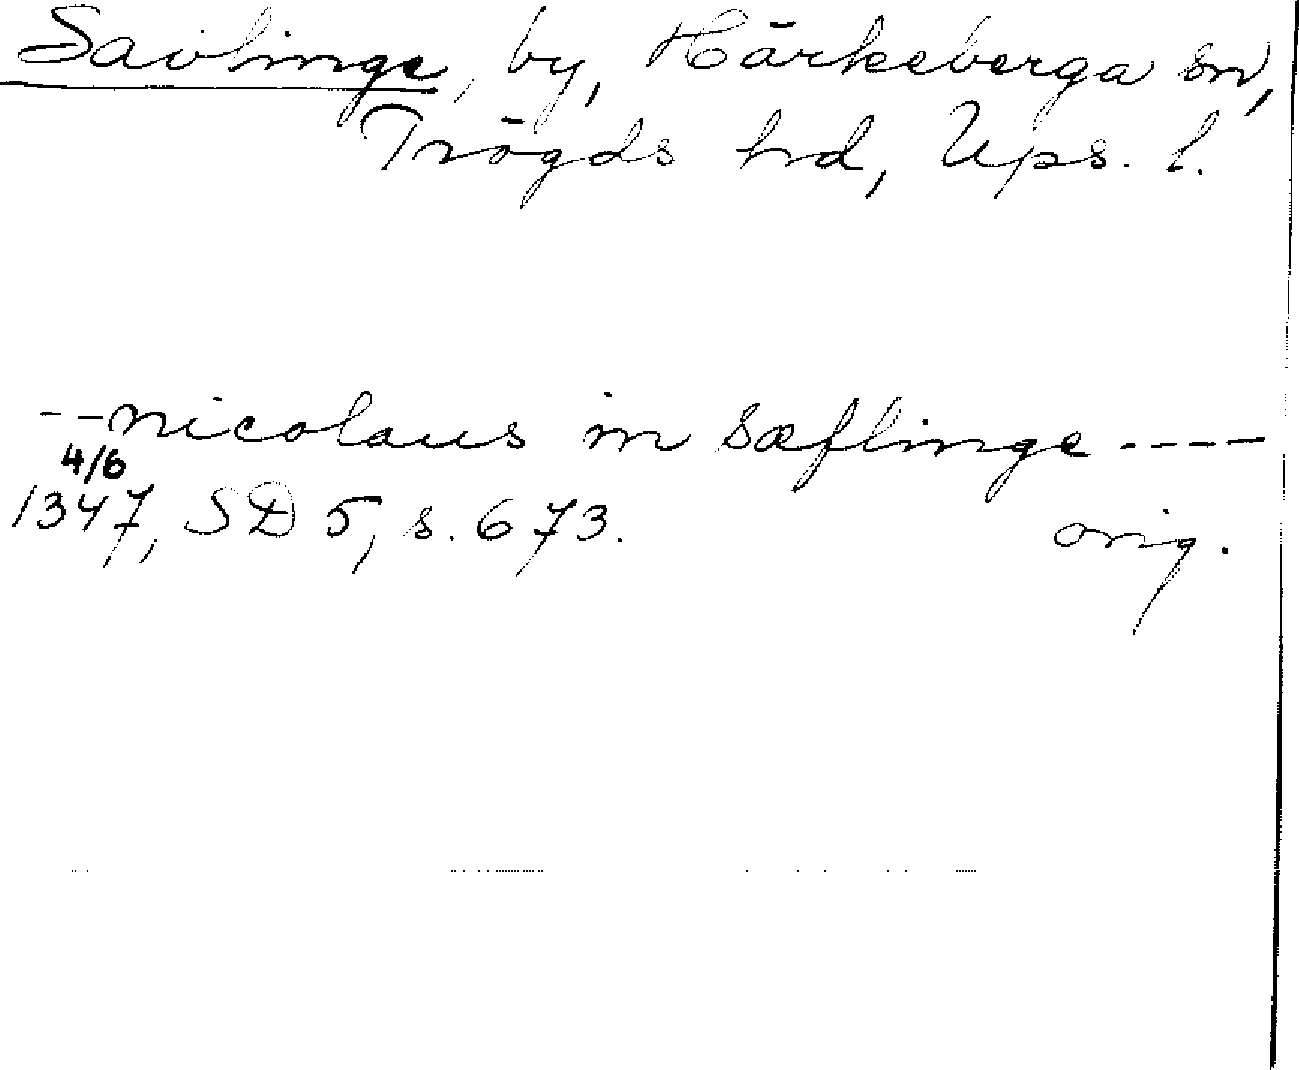 Sävlinge, by, Härkeberga sn,
Trögds hd, Ups. l.
-- nicolaus in sæflinge ----
4/6
1347, SD 5, s. 673. orig.